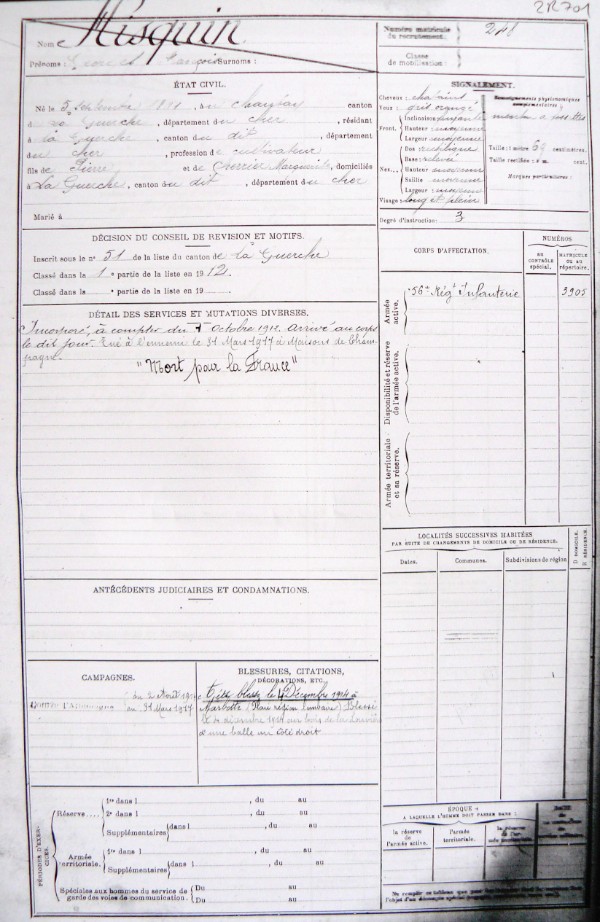 2R701
Nom Misquin.
Prénoms : François Surnoms :
Numéro matricule
du recrutement :
Classe
de mobilisation :
ÉTAT CIVIL.
Né le 5 septembre 1891, à canton
d La Guerche, département du Cher, résidant
à La Guerche, canton du dit, département
du Cher, profession de cultivateur
fils de Pierre et de Cherrier Marguerite, domiciliés
à La Guerche, canton du dit, département du Cher
Marié à
DÉCISION DU CONSEIL DE REVISION ET MOTIFS.
Inscrit sous le n° 51 de la liste du canton de La Guerche
Classé dans la 1e partie de la liste en 1912.
Classé dans la partie de la liste en 19
DÉTAIL DES SERVICES ET MUTATIONS DIVERSES.
Incorporé à compter du octobre 1912. Arrivé au corps
le dit jour. Tué à l'ennemi le 31 Mars 1917 à Maisons de Cham
pagne.
"Mort pour la France"
ANTÉCÉDENTS JUDICIAIRES ET CONDAMNATIONS.
CAMPAGNES.
Contre l'Allemagne du 2 Août 1914
au 31 Mars 1917
BLESSURES, CITATIONS,
DÉCORATIONS, ETC.
blessé le Décembre 1914 à
Marbotte (Plaie région lombaire) Blessé
le décembre 1914 au bois de la
d'une balle au côté droit
PÉRIODES D'EXERCICES.
Réserve
1re dans l , du au
2e dans l , du au
Supplémentaires dans l , du au
Armée
territoriale.
1re dans l , du au
Supplémentaires dans l , du au
Spéciales aux hommes du service de
garde des voies de communication.
Du au
Du au
SIGNALEMENT.
Cheveux châtains
Yeux gris orangé
Front
Inclinaison fuyante
Hauteur moyenne
Largeur moyenne
Nez
Dos
Base relevée
Hauteur moyenne
Saillie moyenne
Largeur moyenne
Visage long et plein
Renseignements physionomiques
complémentaires :
Taille : 1 mètre centimètres.
Taille rectifiée : 1 m. cent.
Marques particulières :
Degré d'instruction : 3
CORPS D'AFFECTATION.
NUMÉROS
AU
CONTRÔLE
SPÉCIAL.
MATRICULE
OU AU
RÉPERTOIRE.
Armée
active.
56e Régt Infanterie
3905
Disponibilité et réserve
de l'armée active.
Armée territoriale
et sa réserve.
LOCALITÉS SUCCESSIVES HABITÉES
PAR SUITE DE CHANGEMENTS DE DOMICILE OU DE RÉSIDENCE.
Dates.
Communes.
Subdivisions de région
D DOMICILE.
R RÉSIDENCE.
ÉPOQUE
A LAQUELLE L'HOMME DOIT PASSER DANS :
la réserve
de l'armée active.
l'armée
territoriale.
la réserve
de l'armée
territoriale.